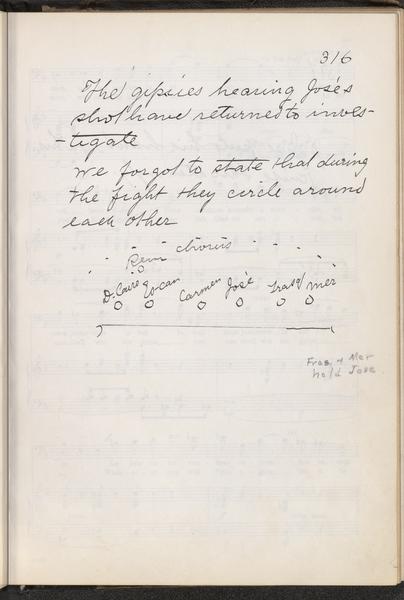 316
The gipsies hearing José's
shot have returned to inves-
-tigate
We forgot to state that during
the fight they circle around
each other
Remi chorus
D. Cairo Es-cam Carmen José Frasq Mer
Fras. + Mer
hold Jose